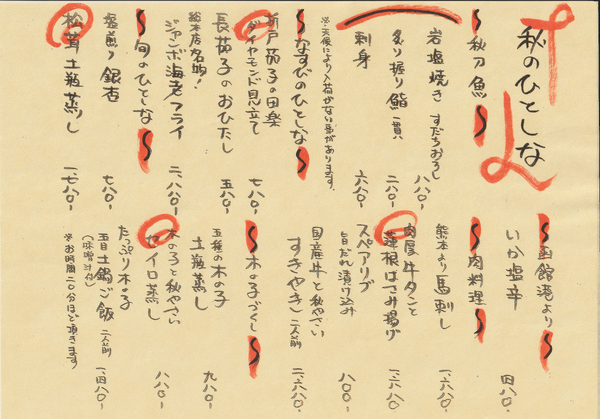 秋のひとしな
〜秋刀魚〜
岩塩焼き すだちおろし 八八〇-
炙り握り鮨 一貫 二八〇-
刺身 六八〇-
※天候により入荷がない事があります。
〜なすびのひとしな〜
折戸茄子の田楽
ダイヤモンド見立て 七八〇-
長茄子のおひたし 五八〇-
総本店名物!
ジャンボ海老フライ 二、八八〇-
〜旬のひとしな〜
塩煎り銀杏 七八〇-
松茸土瓶蒸し 一、七八〇-
〜函館港より〜
いか塩辛 四八〇-
〜肉料理〜
熊本より馬刺し 一、六八〇-
肉厚牛タンと
蓮根はさみ揚げ 一、六八〇-
スペアリブ
旨だれ漬け込み 八八〇-
国産牛と秋やさい
すきやき 二人前 二、六八〇-
〜木の子づくし〜
五種の木の子
土瓶蒸し 九八〇-
木の子と秋やさい
セイロ蒸し 八八〇-
たっぷり木の子
釜土鍋ご飯 二人前 一、四八〇-
(味噌汁付)
※お時間二〇分ほど頂きます